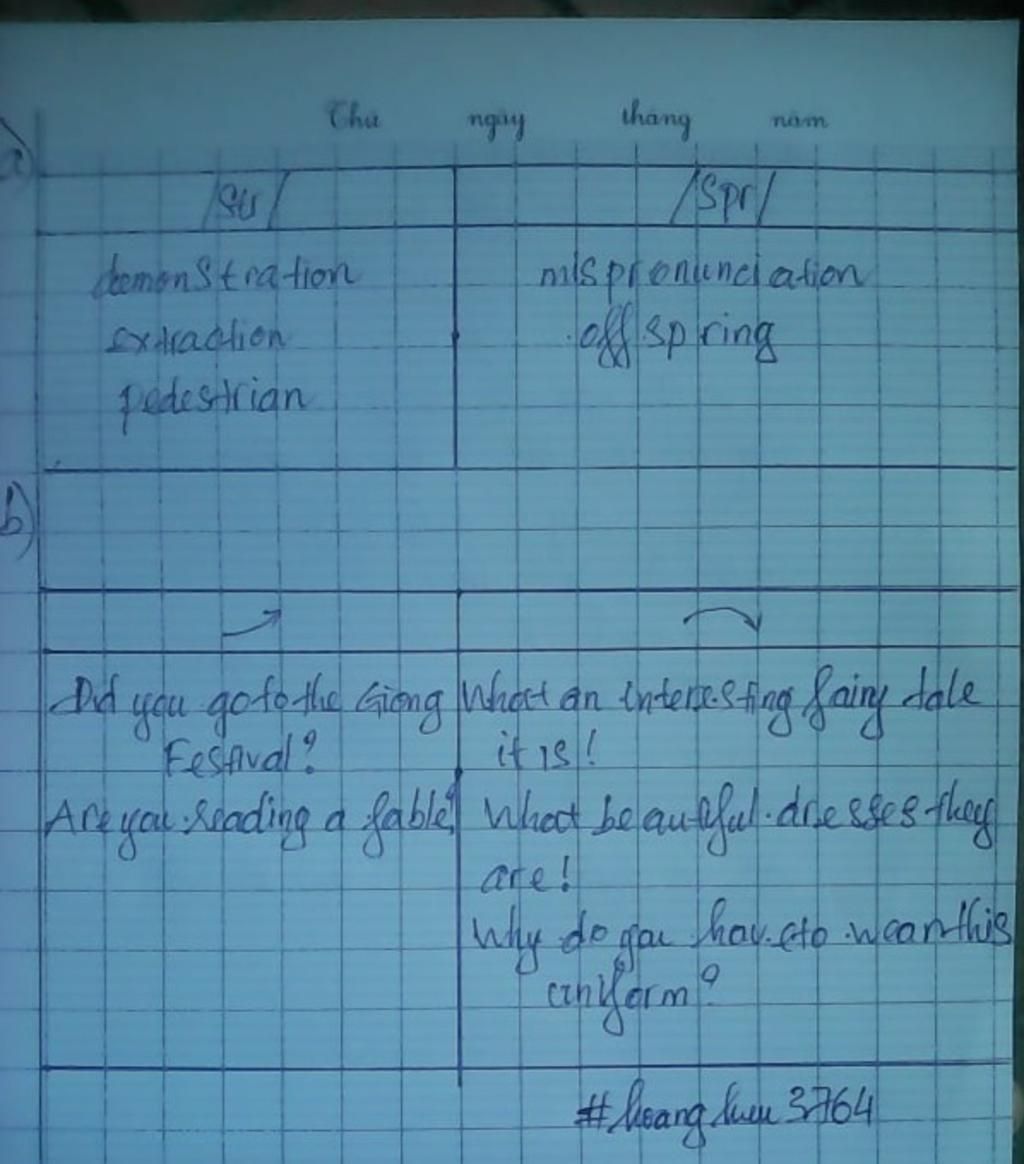 Thứ ngày tháng năm
a)
/Str/ /Spr/
demonstration mispronunciation
extraction offspring
pedestrian
b)
Did you go to the Giong What an interesting fairy tale
Festival? it is!
Are you reading a fable? What beautiful dresses they
are!
Why do you have to wear this
uniform?
#hoang 3764